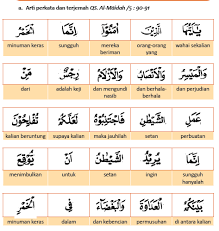 a. Arti perkata dan terjemah QS. Al-Māidah /5 : 90-91
يٰٓاَيُّهَا الَّذِيْنَ اٰمَنُوْٓا اِنَّمَا الْخَمْرُ
wahai sekalian orang-orang yang mereka beriman sungguh minuman keras
وَالْمَيْسِرُ وَالْاَنْصَابُ وَالْاَزْلَامُ رِجْسٌ مِّنْ
dan perjudian dan berhala-berhala dan mengundi nasib adalah keji dari
عَمَلِ الشَّيْطٰنِ فَاجْتَنِبُوْهُ لَعَلَّكُمْ تُفْلِحُوْنَ
perbuatan setan maka jauhilah supaya kalian kalian beruntung
اِنَّمَا يُرِيْدُ الشَّيْطٰنُ اَنْ يُّوْقِعَ
sungguh hanyalah ingin setan untuk menimbulkan
بَيْنَكُمُ الْعَدَاوَةَ وَالْبَغْضَاۤءَ فِى الْخَمْرِ
di antara kalian permusuhan dan kebencian dalam minuman keras